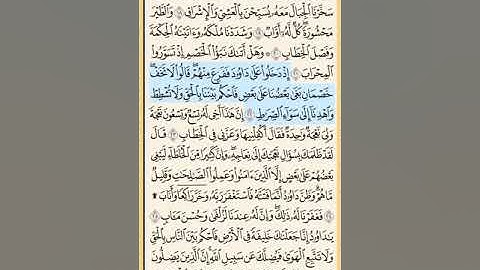 سَخَّرْنَا ٱلْجِبَالَ مَعَهُۥ يُسَبِّحْنَ بِٱلْعَشِىِّ وَٱلْإِشْرَاقِ ١٨ وَٱلطَّيْرَ
مَحْشُورَةً كُلٌّ لَّهُۥٓ أَوَّابٌ ١٩ وَشَدَدْنَا مُلْكَهُۥ وَءَاتَيْنَٰهُ ٱلْحِكْمَةَ
وَفَصْلَ ٱلْخِطَابِ ٢٠ ۞ وَهَلْ أَتَىٰكَ نَبَؤُا۟ ٱلْخَصْمِ إِذْ تَسَوَّرُوا۟
ٱلْمِحْرَابَ ٢١ إِذْ دَخَلُوا۟ عَلَىٰ دَاوُۥدَ فَفَزِعَ مِنْهُمْ قَالُوا۟ لَا تَخَفْ
خَصْمَانِ بَغَىٰ بَعْضُنَا عَلَىٰ بَعْضٍ فَٱحْكُم بَيْنَنَا بِٱلْحَقِّ وَلَا تُشْطِطْ
وَٱهْدِنَآ إِلَىٰ سَوَآءِ ٱلصِّرَٰطِ ٢٢ إِنَّ هَٰذَآ أَخِى لَهُۥ تِسْعٌ وَتِسْعُونَ نَعْجَةً
وَلِىَ نَعْجَةٌ وَٰحِدَةٌ فَقَالَ أَكْفِلْنِيهَا وَعَزَّنِى فِى ٱلْخِطَابِ ٢٣ قَالَ
لَقَدْ ظَلَمَكَ بِسُؤَالِ نَعْجَتِكَ إِلَىٰ نِعَاجِهِۦ وَإِنَّ كَثِيرًا مِّنَ ٱلْخُلَطَآءِ لَيَبْغِى
بَعْضُهُمْ عَلَىٰ بَعْضٍ إِلَّا ٱلَّذِينَ ءَامَنُوا۟ وَعَمِلُوا۟ ٱلصَّٰلِحَٰتِ وَقَلِيلٌ
مَّا هُمْ وَظَنَّ دَاوُۥدُ أَنَّمَا فَتَنَّٰهُ فَٱسْتَغْفَرَ رَبَّهُۥ وَخَرَّ رَاكِعًا وَأَنَابَ ۩
٢٤ فَغَفَرْنَا لَهُۥ ذَٰلِكَ وَإِنَّ لَهُۥ عِندَنَا لَزُلْفَىٰ وَحُسْنَ مَـَٔابٍ ٢٥
يَٰدَاوُۥدُ إِنَّا جَعَلْنَٰكَ خَلِيفَةً فِى ٱلْأَرْضِ فَٱحْكُم بَيْنَ ٱلنَّاسِ بِٱلْحَقِّ
وَلَا تَتَّبِعِ ٱلْهَوَىٰ فَيُضِلَّكَ عَن سَبِيلِ ٱللَّهِ إِنَّ ٱلَّذِينَ يَضِلُّونَ